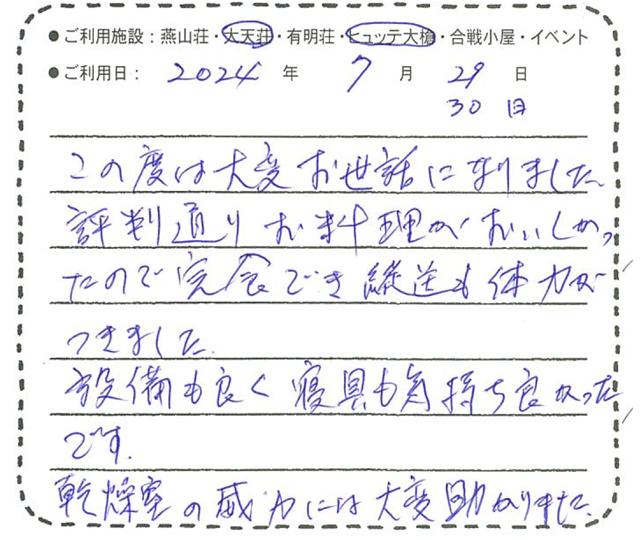 ●ご利用施設：燕山荘・大天荘・有明荘・ヒュッテ大槍・合戦小屋・イベント
●ご利用日： 2024 年 7 月 29 日
30 日
この度は大変お世話になりました。
評判通りお料理がおいしかっ
たので完食でき縦送も体力が
つきました。
設備も良く寝具も気持ち良かった
です.
乾燥室の威力には大変助かりました.